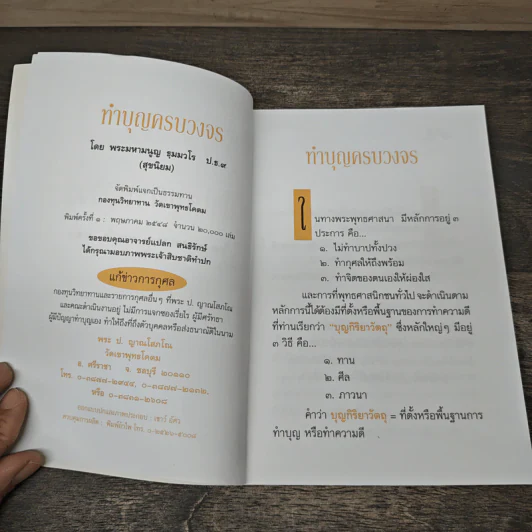 ทำบุญครบวงจร
โดย พระมหามนูญ ธมฺมวโร ป.ธ.๙
(สุขนิยม)
จัดพิมพ์แจกเป็นธรรมทาน
กองทุนวิทยาทาน วัดเขาพุทธโคดม
พิมพ์ครั้งที่ ๑ : พฤษภาคม ๒๕๔๘ จำนวน ๒๐,๐๐๐ เล่ม
ขอขอบคุณอาจารย์แปลก สนธิรักษ์
ได้กรุณามอบภาพพระเจ้าสิบชาติทำปก
แก้ข่าวการกุศล
กองทุนวิทยาทานและรายการกุศลอื่นๆ ที่พระ ป. ญาณโสภโณ
และคณะดำเนินงานอยู่ ไม่มีการแจกซองเรี่ยไร ผู้มีศรัทธา
ผู้มีปัญญาทำบุญเอง ทำให้ถึงที่ถึงตัวบุคคลหรือส่งธนาณัติในนาม
พระ ป. ญาณโสภโณ
วัดเขาพุทธโคดม
อ. ศรีราชา จ. ชลบุรี ๒๐๑๑๐
หรือ
ทำบุญครบวงจร
ในทางพระพุทธศาสนา มีหลักการอยู่ ๓
ประการ คือ...
๑. ไม่ทำบาปทั้งปวง
๒. ทำกุศลให้ถึงพร้อม
๓. ทำจิตของตนเองให้ผ่องใส
และการที่พุทธศาสนิกชนทั่วไป จะดำเนินตาม
หลักการนี้ได้ต้องมีที่ตั้งหรือพื้นฐานของการทำความดี
ที่ท่านเรียกว่า "บุญกิริยาวัตถุ" ซึ่งหลักใหญ่ๆ มีอยู่
๓ วิธี คือ...
๑. ทาน
๒. ศีล
๓. ภาวนา
คำว่า บุญกิริยาวัตถุ = ที่ตั้งหรือพื้นฐานการ
ทำบุญ หรือทำความดี